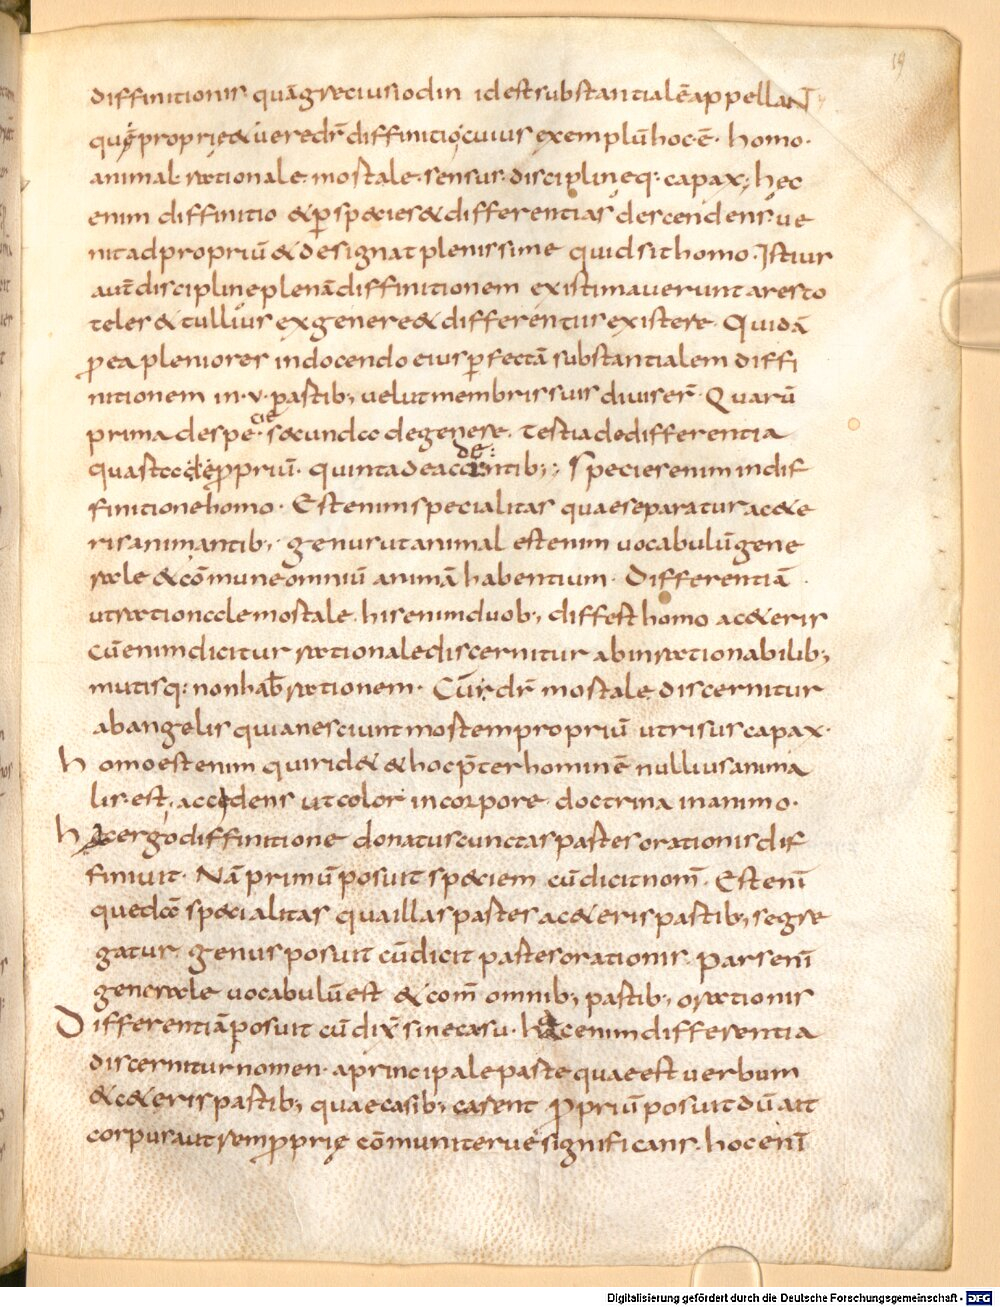 19
diffinitionis quā grecius iodin id est substantialē appellaN
quę́ proprię & uere dr̄ diffinitio cuius exemplū hoc ē· homo·
animal· rationale· mortale· sensus· disciplineq: capax; hec
enim diffinitio & p̱ species & differentias descendens ue
nit ad propriū & designat plenissime quid sit homo· Istius
aut̄ discipline plenā diffinitionem existimauerunt aresto
teles & tullius ex genere & differentiis existere· Quidā
p ea pleniores in docendo eius p̱fectā substantialem diffi
nitionem in ·v· partib; uelut membris suis diuiser̄· Quarū
prima de specie· secunda de genere· tertia de differentia
quarta de ꝓpriū· quinta de accidentib;; Species enim in dif
finitione homo· Est enim specialitas quae separatur a c&e
ris animantib;· genus ut animal est enim uocabulū gene
rale & cōmune omniū animā habentium· Differentiā
ut rationale mortale· his enim duob; differt homo a c&eris
cū enim dicitur rationale discernitur ab inrationabilib;
mutisq: non hab̄ rationem· Cū dr̄ mortale discernitur
ab angelis qui a nesciunt mortem propriū ut risus capax·
homo est enim qui rid& & hoc p̄ter hominē nullius anima
lis est, accidens ut color in corpore· doctrina in animo·
hac ergo diffinitione donatus cunctas partes orationis dif
finiuit· Nā primū posuit speciem cū dicit nom̄· Est enī
quedā specialitas qua illas partes a c&eris partib; segre
gatur· genus posuit cū dicit partes orationis· Pars enī
generale uocabulū est & com̄ omnib; partib; orationis
Differentiā posuit cū dix̄ sine casu· hac enim differentia
discernitur nomen· a principale parte quae est uerbum
& c&eris partib; quae casib; carent ꝓpriū posuit dū ait
corpus aut rem ꝓprię cōmuniterue significans· hoc enī
Digitalisierung gefördert durch die Deutsche Forschungsgemeinschaft - DFG